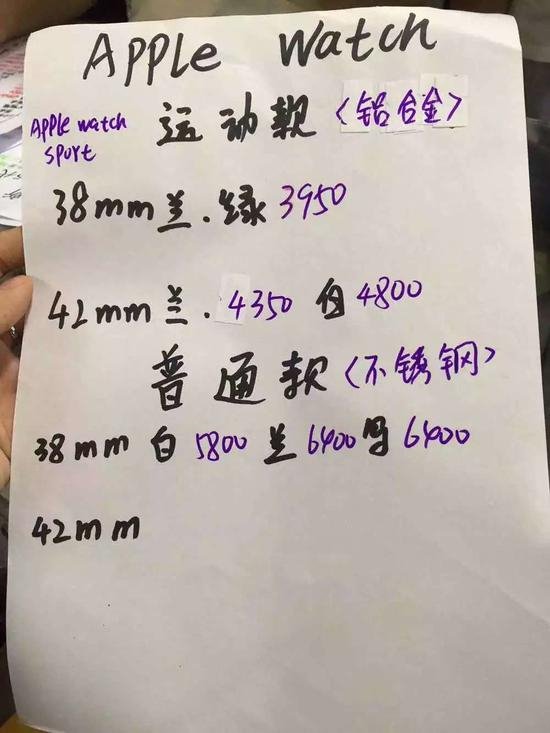 APPle Watch
Apple watch
sport
运动款〈铝合金〉
38mm 兰.绿 3950
42mm 兰.4350 白 4800
普通款〈不锈钢〉
38mm 白 5800 兰 6400 6400
42mm